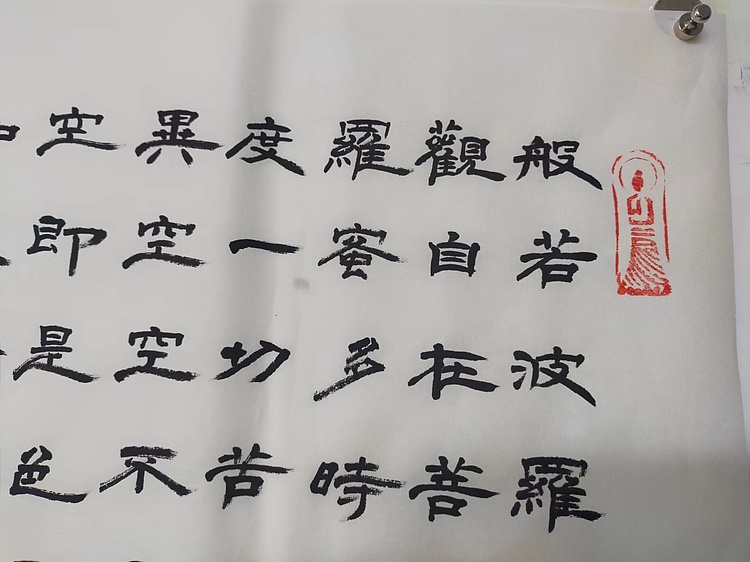 般若波羅
觀自在菩
羅蜜多時
度一切苦
異空空不
空即是色